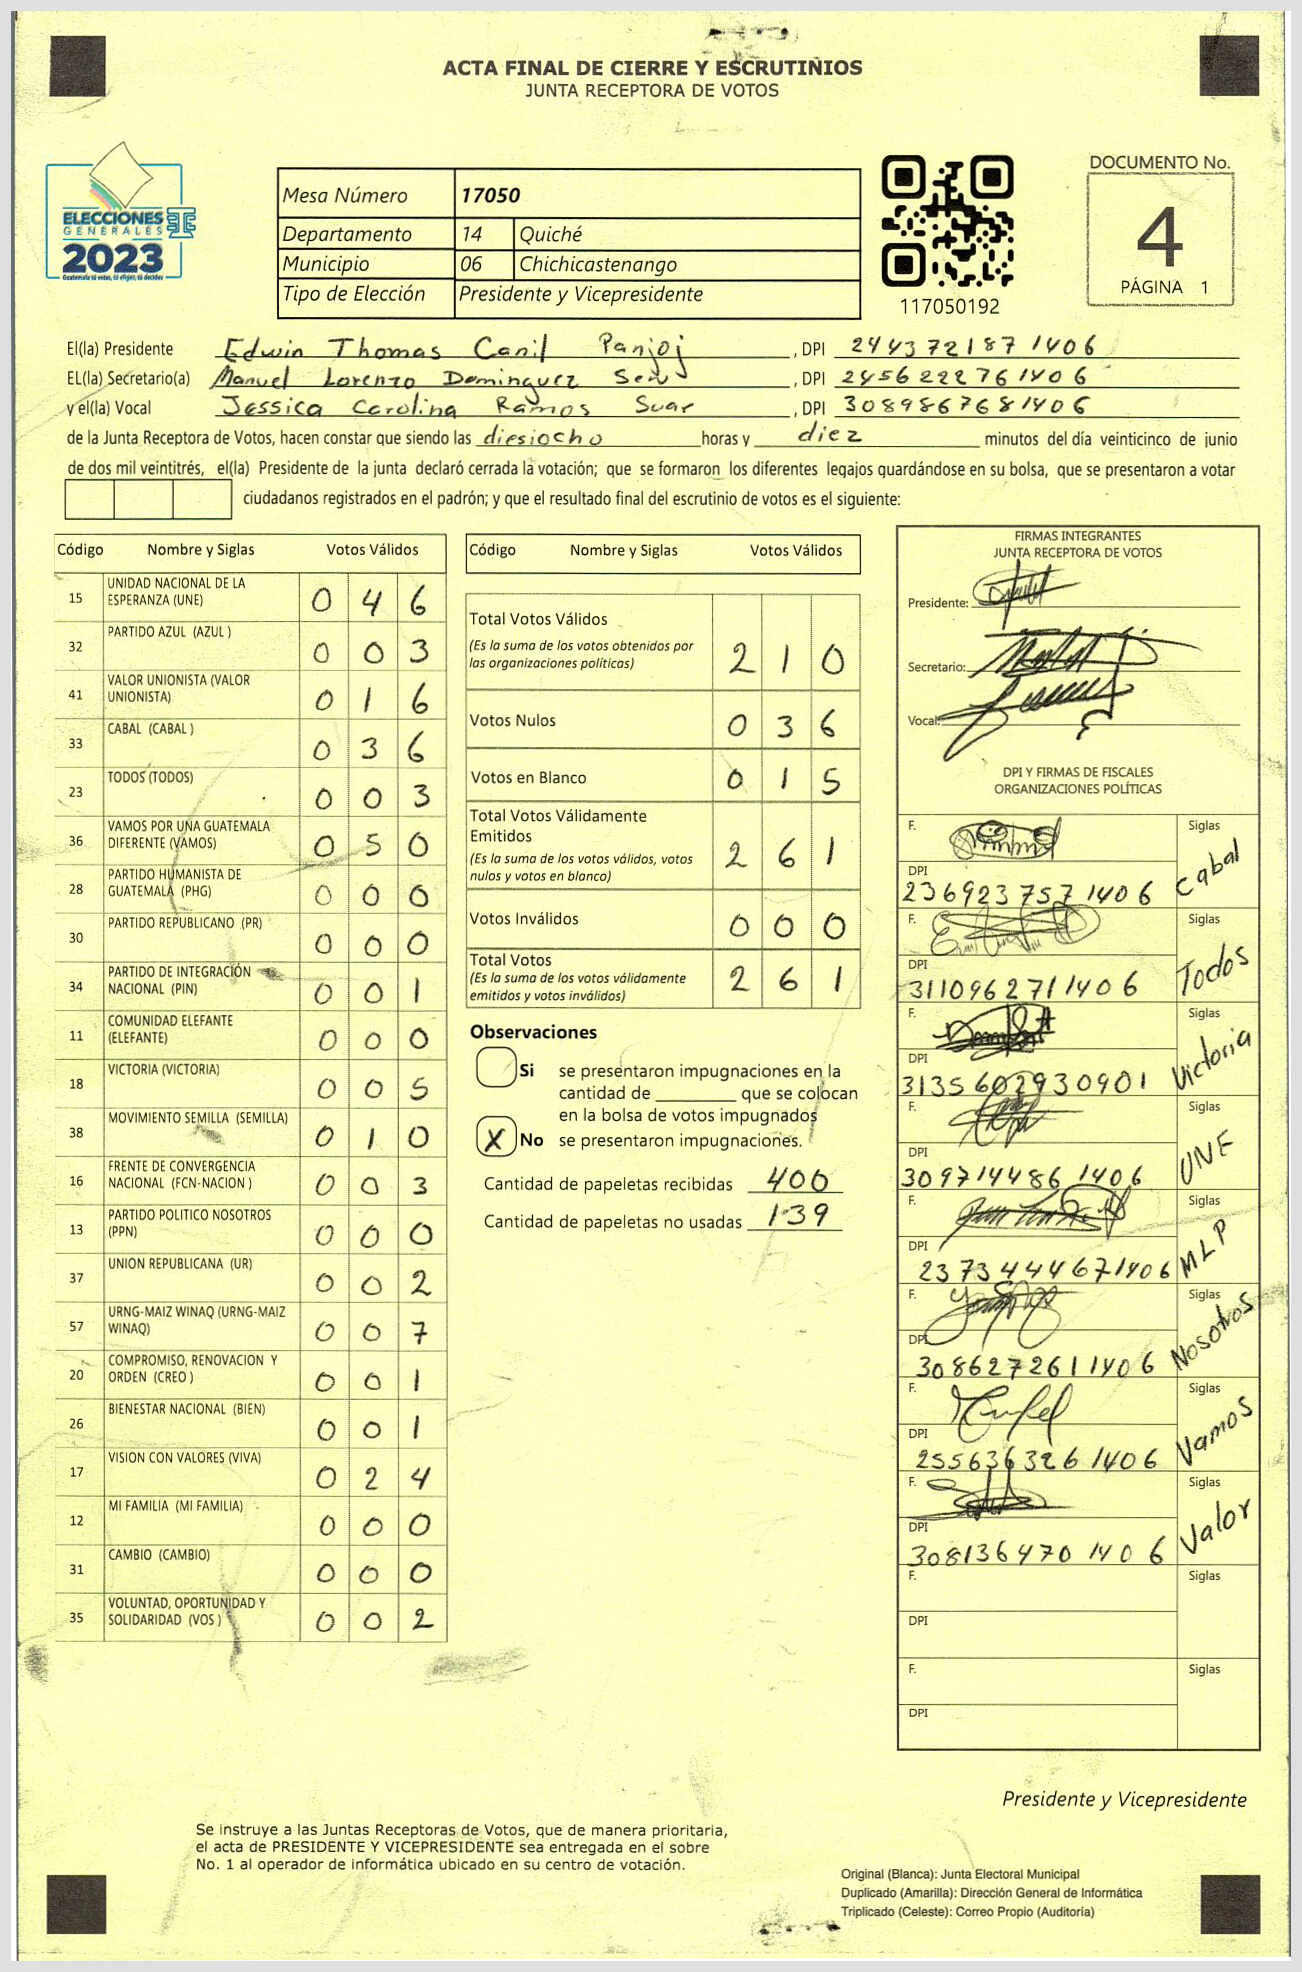 ACTA FINAL DE CIERRE Y ESCRUTINIOS
JUNTA RECEPTORA DE VOTOS
ELECCIONES
GENERALES
2023
Guatemala tú votas, tú eliges, tú decides
Mesa Número 17050
Departamento 14 Quiché
Municipio 06 Chichicastenango
Tipo de Elección Presidente y Vicepresidente
117050192
DOCUMENTO No.
4
PÁGINA 1
El(la) Presidente Edwin Thomas Canil Panjoj , DPI 244372187 1406
EL(la) Secretario(a) Manuel Lorenzo Dominguez , DPI 245622276 1406
y el(la) Vocal Jessica Carolina Ramos Suar , DPI 308986768 1406
de la Junta Receptora de Votos, hacen constar que siendo las diesiocho horas y diez minutos del día veinticinco de junio
de dos mil veintitrés, el(la) Presidente de la junta declaró cerrada la votación; que se formaron los diferentes legajos guardándose en su bolsa, que se presentaron a votar
ciudadanos registrados en el padrón; y que el resultado final del escrutinio de votos es el siguiente:
Código Nombre y Siglas Votos Válidos
15 UNIDAD NACIONAL DE LA ESPERANZA (UNE) 0 4 6
32 PARTIDO AZUL (AZUL ) 0 0 3
41 VALOR UNIONISTA (VALOR UNIONISTA) 0 1 6
33 CABAL (CABAL ) 0 3 6
23 TODOS (TODOS) 0 0 3
36 VAMOS POR UNA GUATEMALA DIFERENTE (VAMOS) 0 5 0
28 PARTIDO HUMANISTA DE GUATEMALA (PHG) 0 0 0
30 PARTIDO REPUBLICANO (PR) 0 0 0
34 PARTIDO DE INTEGRACIÓN NACIONAL (PIN) 0 0 1
11 COMUNIDAD ELEFANTE (ELEFANTE) 0 0 0
18 VICTORIA (VICTORIA) 0 0 5
38 MOVIMIENTO SEMILLA (SEMILLA) 0 1 0
16 FRENTE DE CONVERGENCIA NACIONAL (FCN-NACION ) 0 0 3
13 PARTIDO POLITICO NOSOTROS (PPN) 0 0 0
37 UNION REPUBLICANA (UR) 0 0 2
57 URNG-MAIZ WINAQ (URNG-MAIZ WINAQ) 0 0 7
20 COMPROMISO, RENOVACION Y ORDEN (CREO ) 0 0 1
26 BIENESTAR NACIONAL (BIEN) 0 0 1
17 VISION CON VALORES (VIVA) 0 2 4
12 MI FAMILIA (MI FAMILIA) 0 0 0
31 CAMBIO (CAMBIO) 0 0 0
35 VOLUNTAD, OPORTUNIDAD Y SOLIDARIDAD (VOS ) 0 0 2
Código Nombre y Siglas Votos Válidos
Total Votos Válidos 2 1 0
(Es la suma de los votos obtenidos por
las organizaciones políticas)
Votos Nulos 0 3 6
Votos en Blanco 0 1 5
Total Votos Válidamente
Emitidos 2 6 1
(Es la suma de los votos válidos, votos
nulos y votos en blanco)
Votos Inválidos 0 0 0
Total Votos 2 6 1
(Es la suma de los votos válidamente
emitidos y votos inválidos)
Observaciones
Si se presentaron impugnaciones en la
cantidad de ________ que se colocan
en la bolsa de votos impugnados
X No se presentaron impugnaciones.
Cantidad de papeletas recibidas 400
Cantidad de papeletas no usadas 139
FIRMAS INTEGRANTES
JUNTA RECEPTORA DE VOTOS
Presidente:
Secretario:
Vocal:
DPI Y FIRMAS DE FISCALES
ORGANIZACIONES POLÍTICAS
F. Siglas Cabal
DPI 236923 757 1406
F. Siglas Todos
DPI 311096271 1406
F. Siglas Victoria
DPI 313560293 0901
F. Siglas UNE
DPI 309714486 1406
F. Siglas MLP
DPI 237344467 1406
F. Siglas Nosotros
DPI 308627261 1406
F. Siglas Vamos
DPI 255636326 1406
F. Siglas Valor
DPI 308136470 1406
F. Siglas
DPI
F. Siglas
DPI
Presidente y Vicepresidente
Se instruye a las Juntas Receptoras de Votos, que de manera prioritaria,
el acta de PRESIDENTE Y VICEPRESIDENTE sea entregada en el sobre
No. 1 al operador de informática ubicado en su centro de votación.
Original (Blanca): Junta Electoral Municipal
Duplicado (Amarilla): Dirección General de Informática
Triplicado (Celeste): Correo Propio (Auditoría)